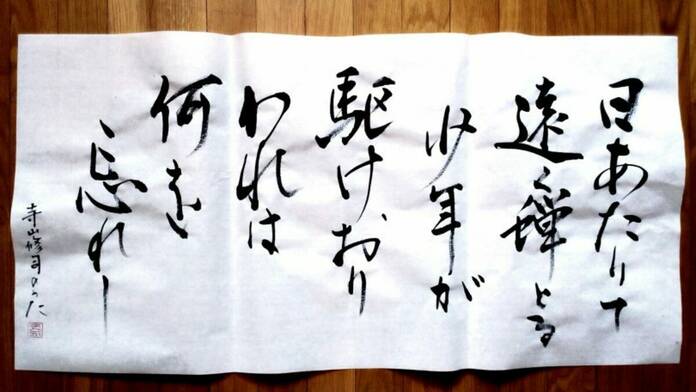 日あたりて
遠く蝉とる
少年が
駆けおり
われは
何を
忘れし
寺山修司のうた